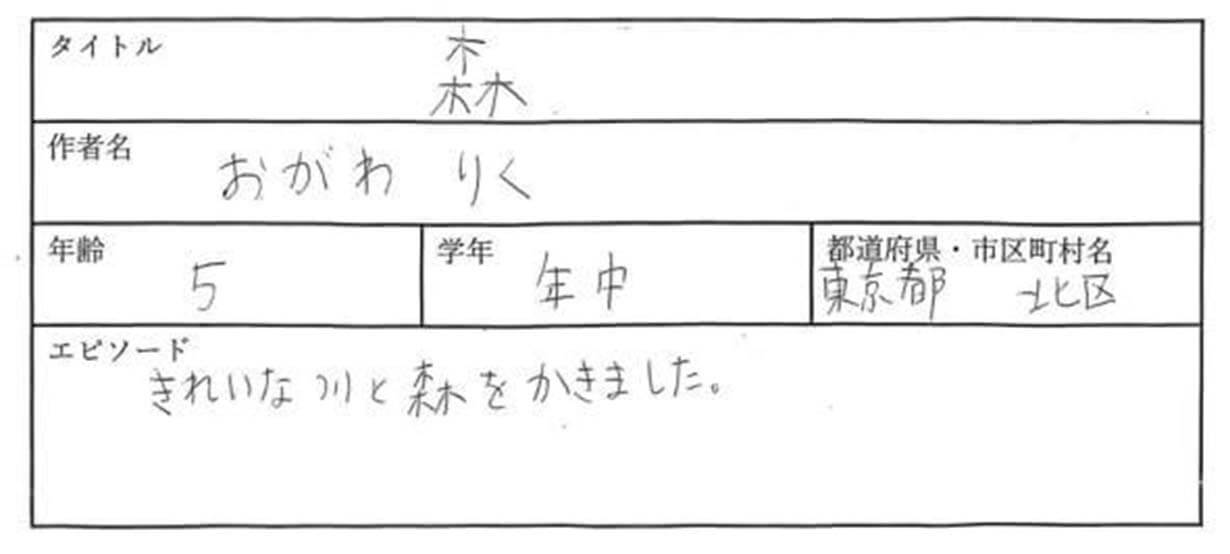 タイトル
森
作者名
おがわ りく
年齢
5
学年
年中
都道府県・市区町村名
東京都 北区
エピソード
きれいな川と森をかきました。